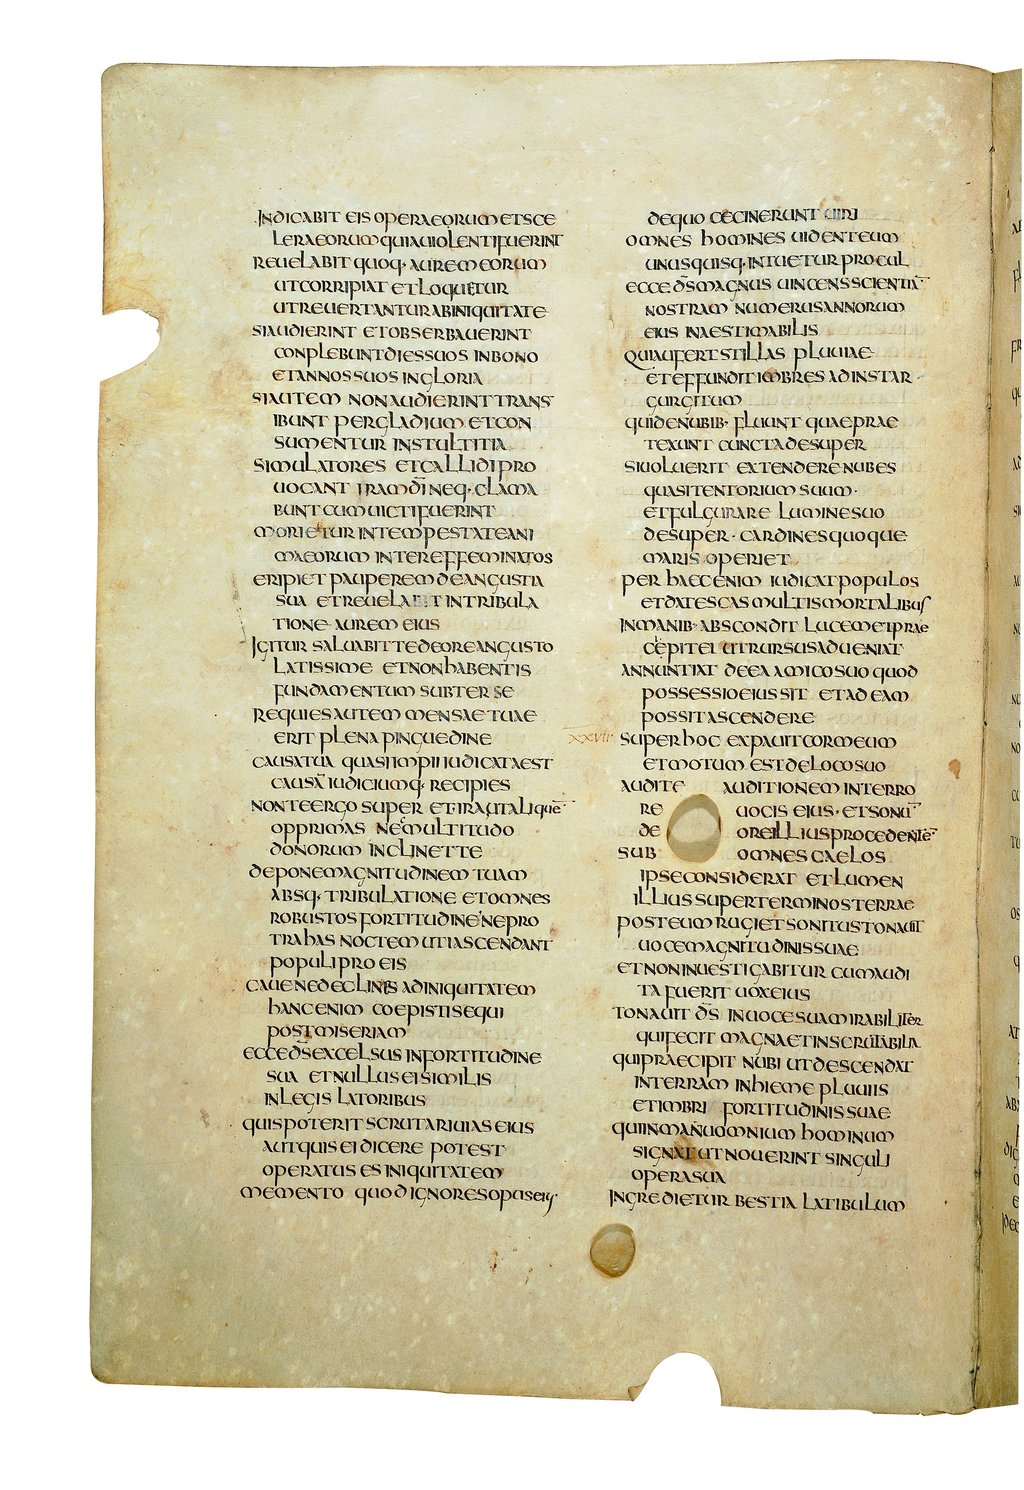 INDICABIT EIS OPERA EORUM ET SCE
LERA EORUM QUIA UIOLENTI FUERINT
REUELABIT QUOQ· AUREM EORUM
UT CORRIPIAT ET LOQUETUR
UT REUERTANTUR AB INIQUITATE
SI AUDIERINT ET OBSERBAUERINT
CONPLEBUNT DIES SUOS IN BONO
ET ANNOS SUOS IN GLORIA
SI AUTEM NON AUDIERINT TRANS
IBUNT PER GLADIUM ET CON
SUMENTUR IN STULTITIA
SIMULATORES ET CALLIDI PRO
UOCANT IRAM DĪ NEQ· CLAMA
BUNT CUM UICTI FUERINT
MORIETUR IN TEMPESTATE ANI
MA EORUM INTER EFFEMINATOS
ERIPIET PAUPEREM DE ANGUSTIA
SUA ET REUELABIT IN TRIBULA
TIONE AUREM EIUS
IGITUR SALUABIT TE DE ORE ANGUSTO
LATISSIME ET NON HABENTIS
FUNDAMENTUM SUBTER SE
REQUIES AUTEM MENSAE TUAE
ERIT PLENA PINGUEDINE
CAUSA TUA QUASI IMPII IUDICATA EST
CAUSĀ IUDICIUMQ· RECIPIES
NON TE ERGO SUPERET IRA UT ALIQUĒ
OPPRIMAS NEC MULTITUDO
DONORUM INCLINET TE
DEPONE MAGNITUDINEM TUAM
ABSQ· TRIBULATIONE ET OMNES
ROBUSTOS FORTITUDINE NE PRO
TRAHAS NOCTEM UT ASCENDANT
POPULI PRO EIS
CAUE NE DECLINIS AD INIQUITATEM
HANC ENIM COEPISTI SEQUI
POST MISERIAM
ECCE D̄S EXCELSUS IN FORTITUDINE
SUA ET NULLUS EI SIMILIS
IN LEGISLATORIBUS
QUIS POTERIT SCRUTARI UIAS EIUS
AUT QUIS EI DICERE POTEST
OPERATUS ES INIQUITATEM
MEMENTO QUOD IGNORES OPUS EIUS·
DE QUO CECINERUNT UIRI
OMNES HOMINES UIDENT EUM
UNUSQUISQ· INTUETUR PROCUL
ECCE D̄S MAGNUS UINCENS SCIENTIĀ
NOSTRAM NUMERUS ANNORUM
EIUS INAESTIMABILIS
QUI AUFERT STILLAS PLUUIAE
ET EFFUNDIT IMBRES AD INSTAR
GURGITUM
QUI DE NUBIB· FLUUNT QUAE PRAE
TEXUNT CUNCTA DESUPER
SI UOLUERIT EXTENDERE NUBES
QUASI TENTORIUM SUUM·
ET FULGURARE LUMINE SUO
DESUPER· CARDINES QUOQUE
MARIS OPERIET
PER HAEC ENIM IUDICAT POPULOS
ET DAT ESCAS MULTIS MORTALIBUS
IN MANIB· ABSCONDIT LUCEM ET PRAE
CEPIT EI UT RURSUS ADUENIAT
ANNUNTIAT DE EA AMICO SUO QUOD
POSSESSIO EIUS SIT ET AD EAM
POSSIT ASCENDERE
XXVII SUPER HOC EXPAUIT COR MEUM
ET MOTUM EST DE LOCO SUO
AUDITE AUDITIONEM IN TERRO
RE UOCIS EIUS· ET SONŪ
DE ORE ILLIUS PROCEDENTĒ
SUB OMNES CAELOS
IPSE CONSIDERAT ET LUMEN
ILLIUS SUPER TERMINOS TERRAE
POST EUM RUGIET SONITUS TONAUIT
UOCE MAGNITUDINIS SUAE
ET NON INUESTIGABITUR CUM AUDI
TA FUERIT UOX EIUS
TONAUIT D̄S IN UOCE SUA MIRABILITER
QUI FECIT MAGNA ET INSCRUTABILIA
QUI PRAECIPIT NUBI UT DESCENDAT
IN TERRAM IN HIEME PLUUIIS
ET IMBRI FORTITUDINIS SUAE
QUI IN MANU OMNIUM HOMINUM
SIGNAT UT NOUERINT SINGULI
OPERA SUA
INGREDIETUR BESTIA LATIBULUM